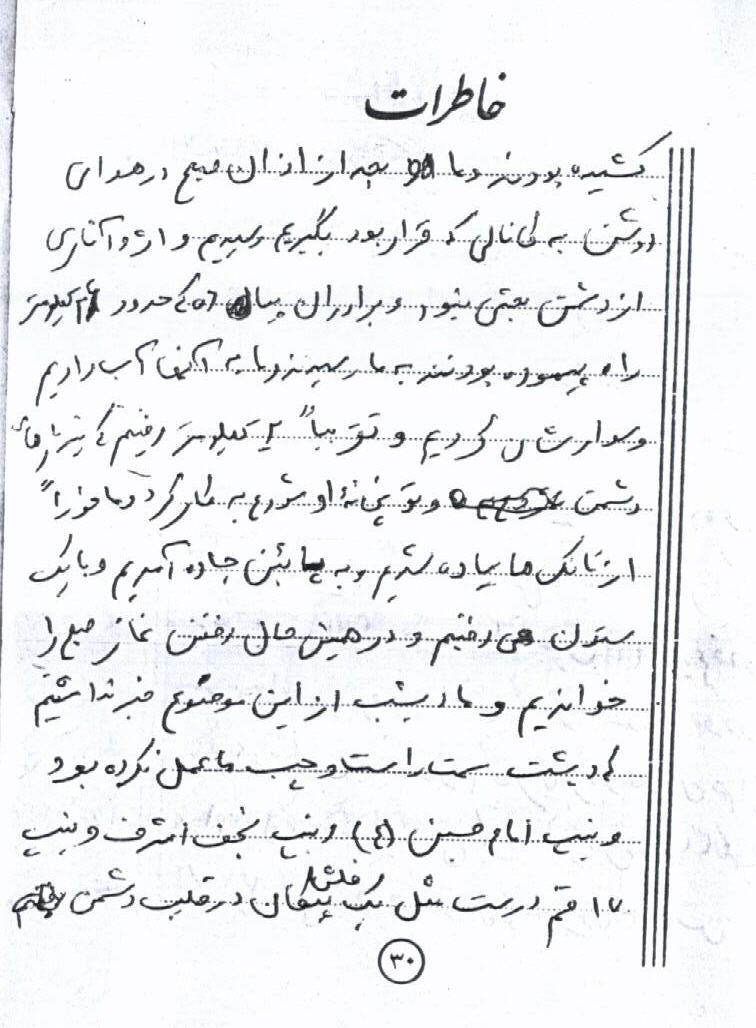 خاطرات
کشیده بودند و ما بعد از اذان صبح در هوای
روشن به کانالی که قرار بود بگیریم رسیدیم و اثر و آثاری
از دشمن بعثی نبود و برادران که حدود کیلومتر
راه پیموده بودند به ما رسیدند و ما به آنها آب دادیم
و سوارشان کردیم و تقریباً یک کیلومتر رفتیم که تیربارهای
دشمن و توپخانه او شروع به کار کرد و ما فوراً
از تانک ها پیاده شدیم و به پائین جاده آمدیم و با یک
ستون می رفتیم و در همین حال رفتن نماز صبح را
خواندیم و ما دیشب از این موضوع خبر نداشتیم
که دیشب سمت راست و چپ ما عمل نکرده بود
و تیپ امام حسین (ع) و تیپ نجف اشرف و تیپ
۱۷ قم درست مثل یک پیکان رفتند در قلب دشمن
۳۰